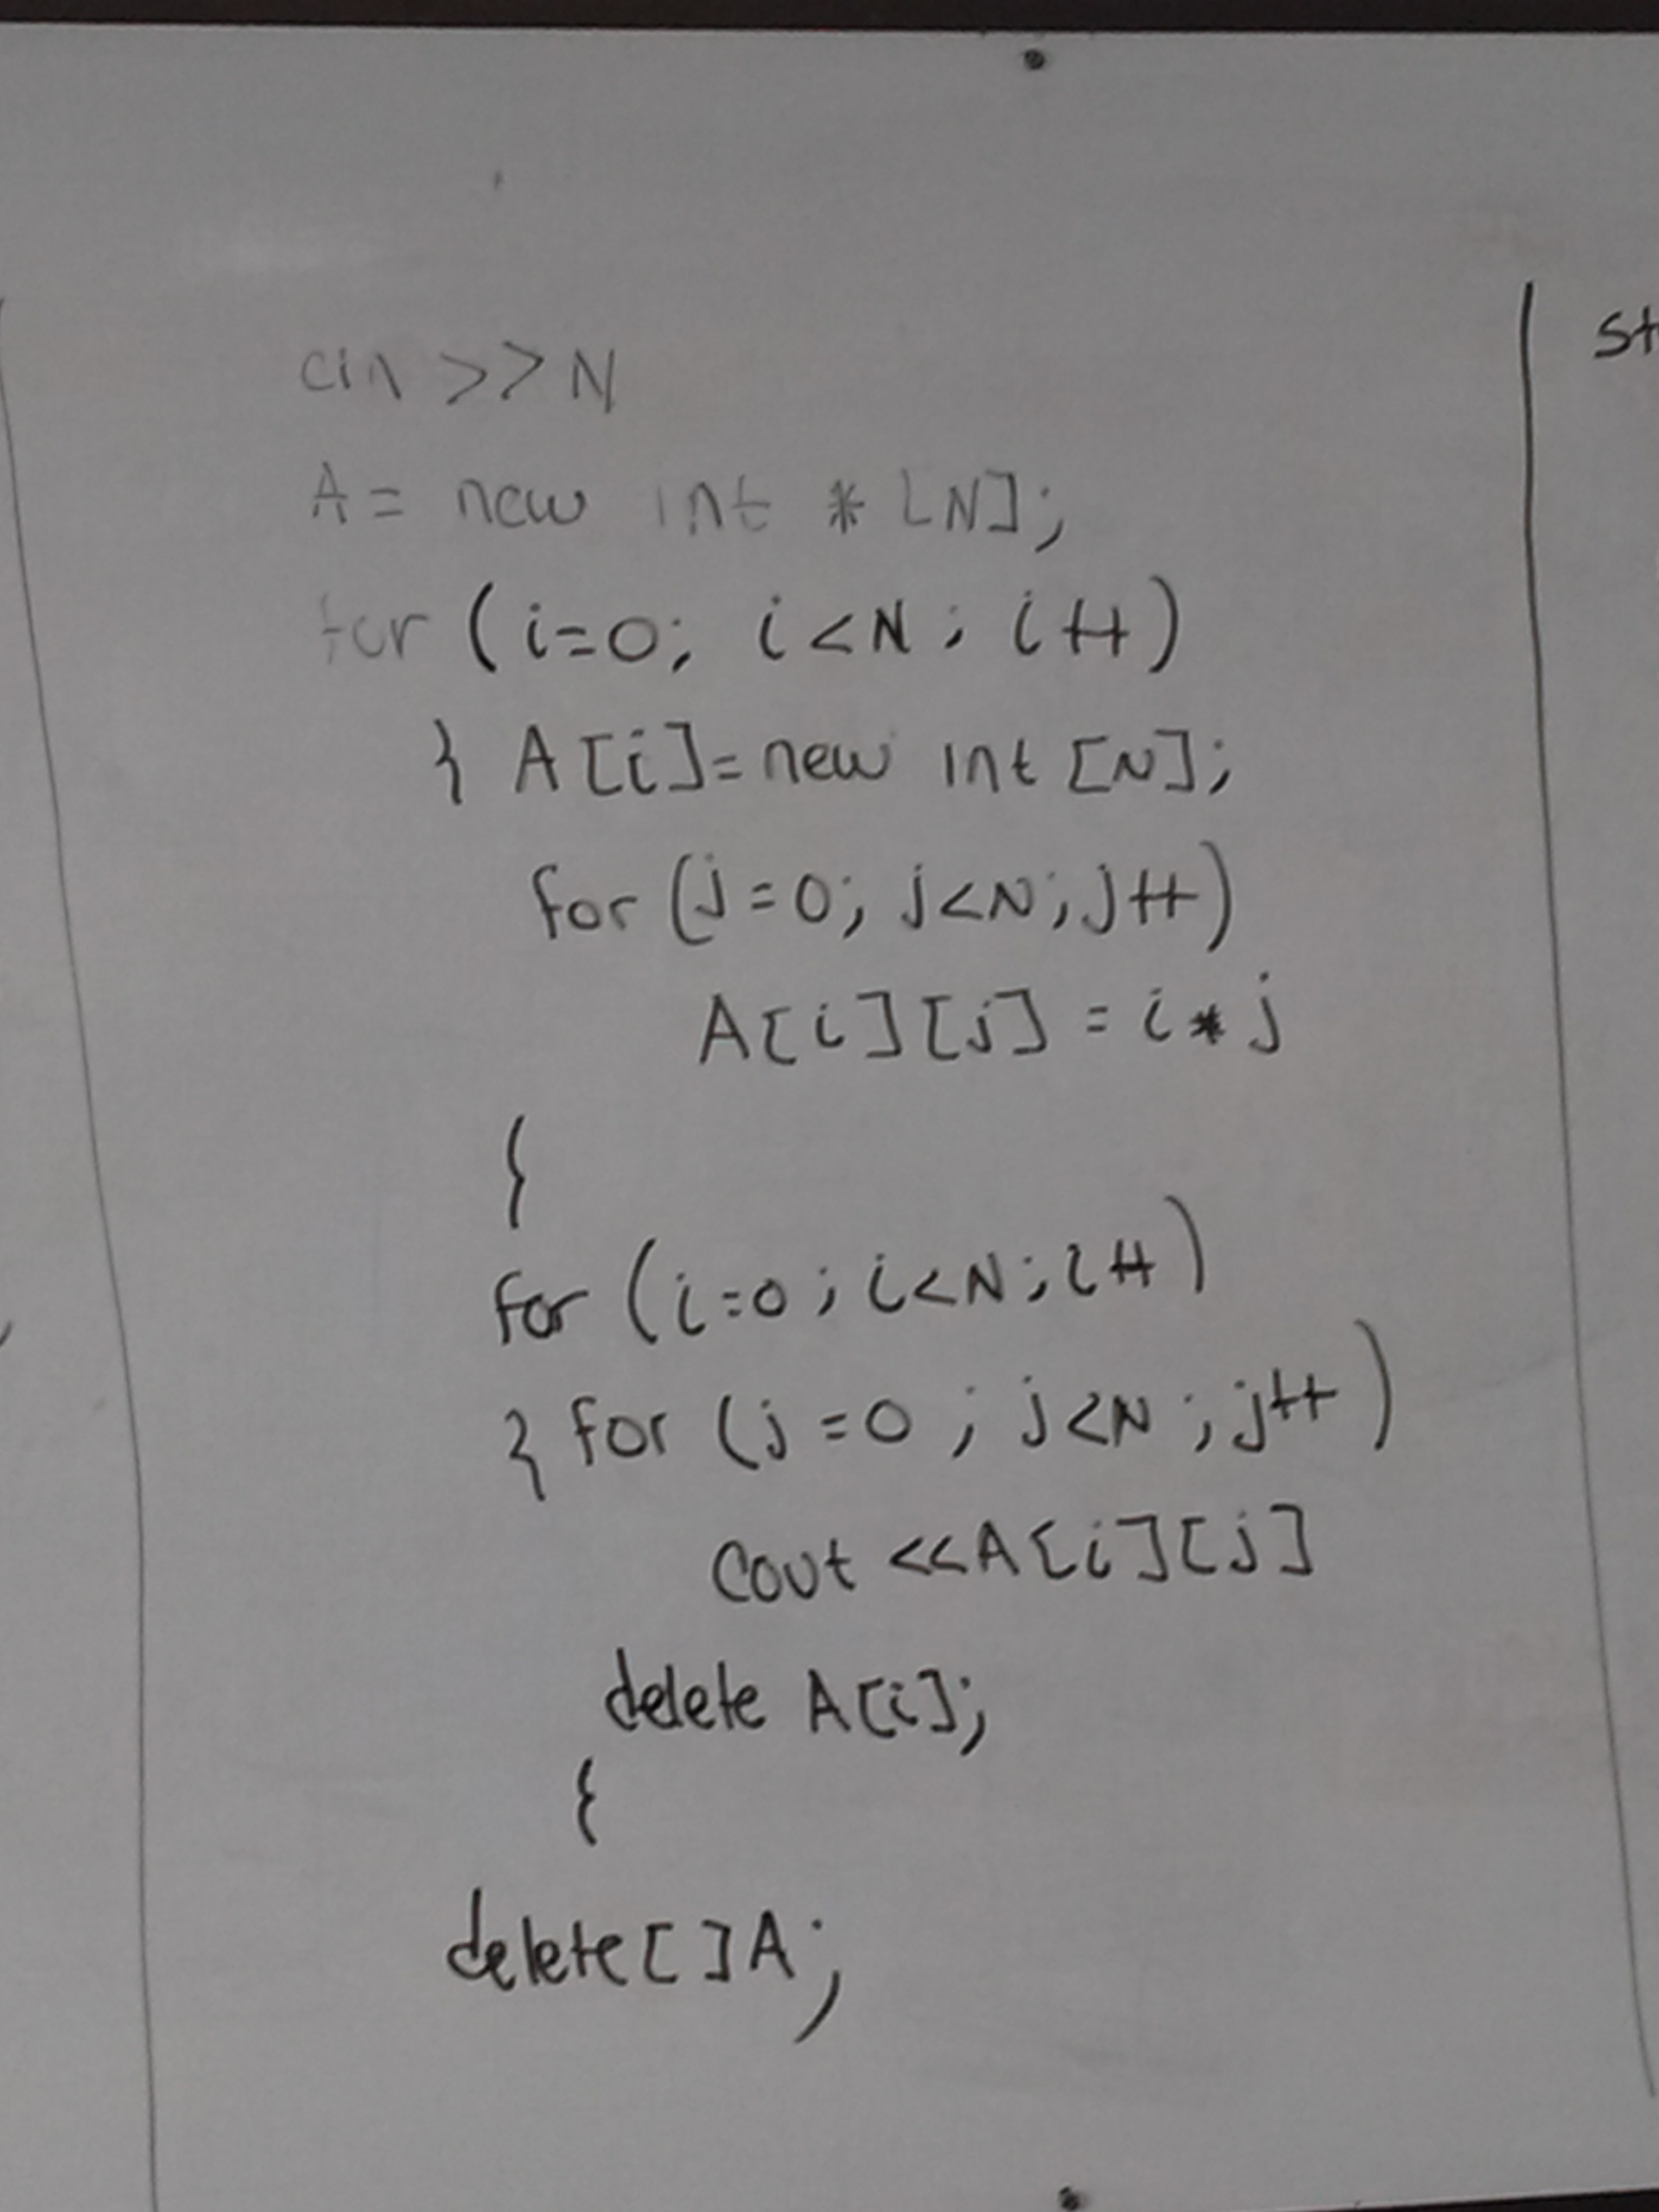 cin >> N
A = new int * [N];
for (i=0; i<N; i++)
} A[i]=new int [N];
for (j=0; j<N; j++)
A[i][j] = i * j
{
for (i=0; i<N; i++)
} for (j=0; j<N; j++)
cout <<A[i][j]
delete A[i];
{
delete[]A;